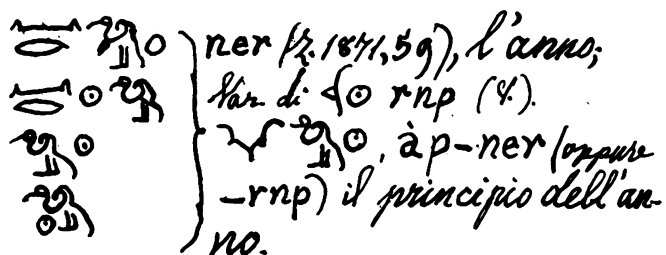 ner (Z. 1871, 59), l'anno;
Var. di rnp (Z.).
àp-ner (oppure
-rnp) il principio dell'an-
no.